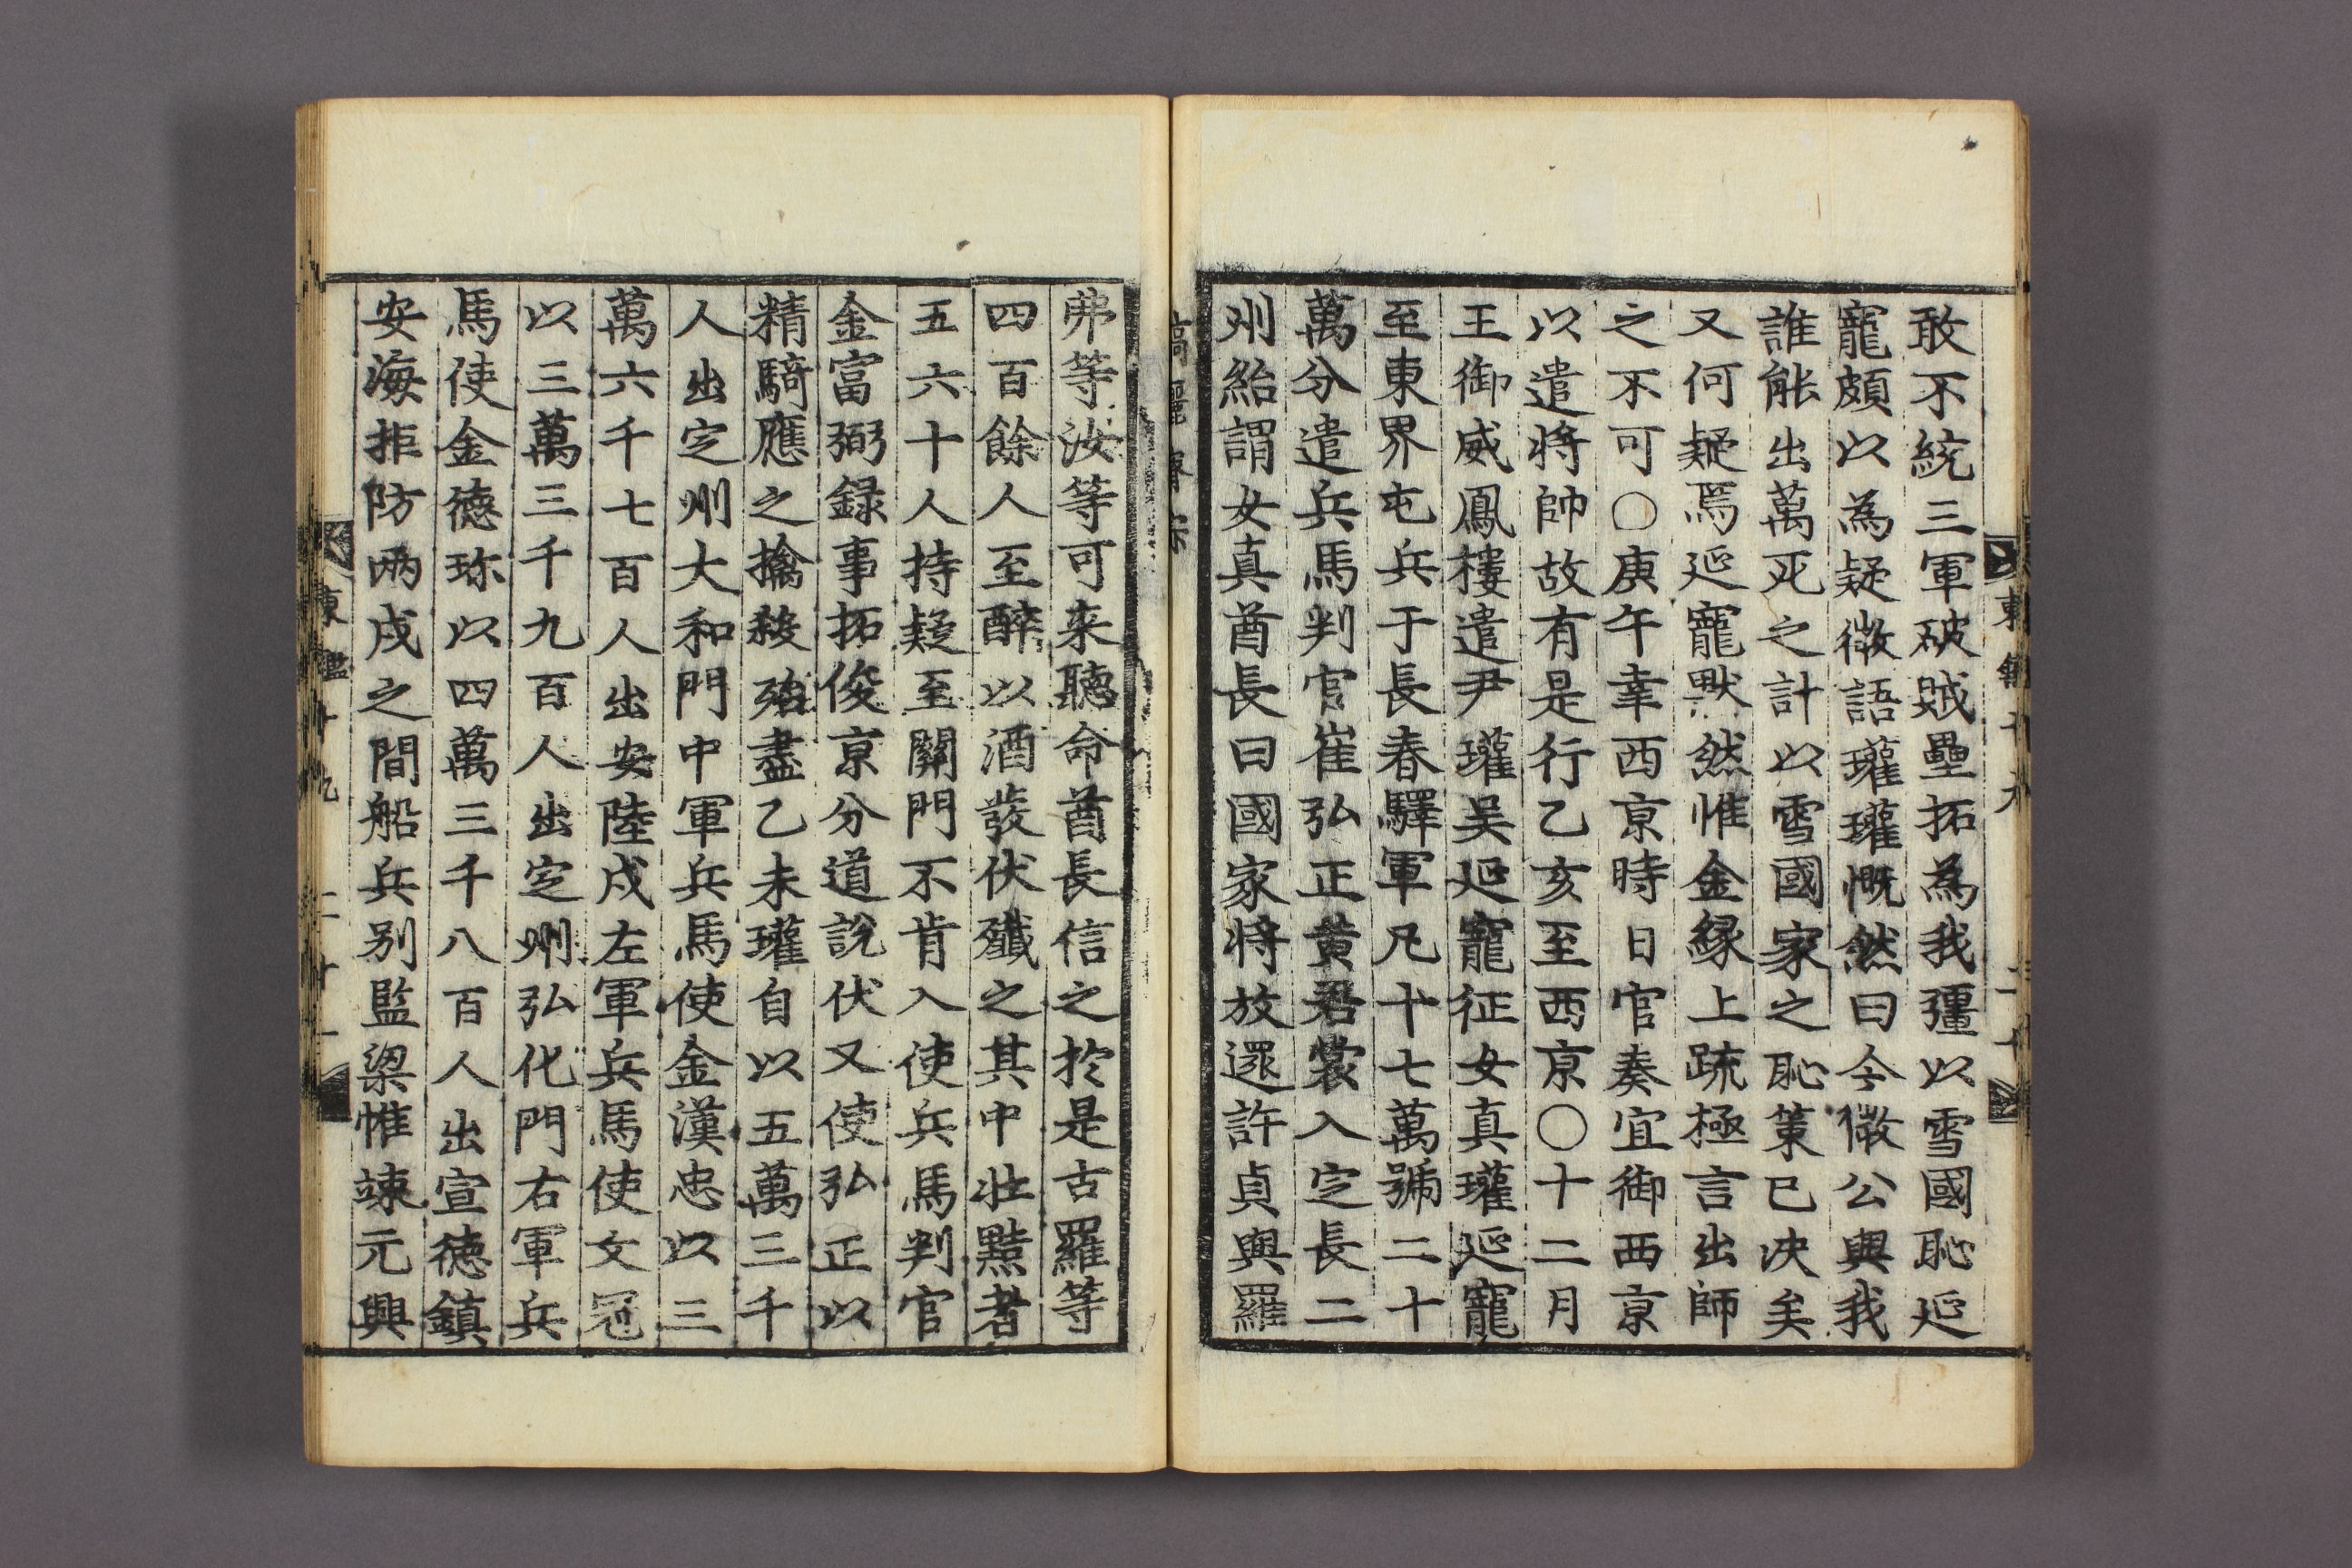 敢不統三軍破賊壘拓為我彊以雪國恥延
寵頗以為疑微語瓘瓘慨然曰今微公與我
誰能出萬死之計以雪國家之恥策已决矣
又何疑焉延寵默然惟金緣上疏極言出師
之不可○庚午幸西京時日官奏宜御西京
以遣將帥故有是行乙亥至西京○十二月
王御威鳳樓遣尹瓘吳延寵征女真瓘延寵
至東界屯兵于長春驛軍凡十七萬號二十
萬分遣兵馬判官崔弘正黃君裳入定長二
州紿謂女真酋長曰國家將放還許貞與羅
弗等汝等可来聽命酋長信之於是古羅等
四百餘人至醉以酒發伏殲之其中壯黠者
五六十人持疑至關門不肯入使兵馬判官
金富弼録事拓俊京分道設伏又使弘正以
精騎應之擒殺殆盡乙未瓘自以五萬三千
人出定州大和門中軍兵馬使金漢忠以三
萬六千七百人出安陸戍左軍兵馬使文冠
以三萬三千九百人出定州弘化門右軍兵
馬使金德珎以四萬三千八百人出宣德鎮
安海拒防兩戍之間船兵别監梁惟竦元興
東鑑十九 二十一